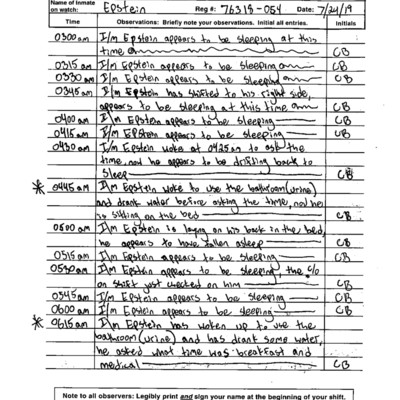 Name of Inmate on watch: Epstein Reg #: 76318-054 Date: 7/24/19
Time Observations: Briefly note your observations. Initial all entries. Initials
0300am I/m Epstein appears to be sleeping at this
time CB
0315am I/m Epstein appears to be sleeping CB
0330am I/m Epstein appears to be sleeping CB
0345am I/m Epstein has shifted to his right side,
appears to be sleeping at this time CB
0400am I/m Epstein appears to be sleeping CB
0415am I/m Epstein appears to be sleeping CB
0430am I/m Epstein woke at 0425am to ask the
time, now he appears to be drifting back to
sleep CB
* 0445am I/m Epstein woke to use the bathroom (urine)
and drank water before asking the time, now he
is sitting on the bed CB
0500am I/m Epstein is laying on his back in the bed,
he appears to have fallen asleep CB
0515am I/m Epstein appears to be sleeping CB
0530am I/m Epstein appears to be sleeping, the c/o
on shift just checked on him CB
0545am I/m Epstein appears to be sleeping CB
0600am I/m Epstein appears to be sleeping CB
* 0615am I/m Epstein has woken up to use the
bathroom (urine) and has drank some water,
he asked what time was breakfast and
medical CB
Note to all observers: Legibly print and sign your name at the beginning of your shift.